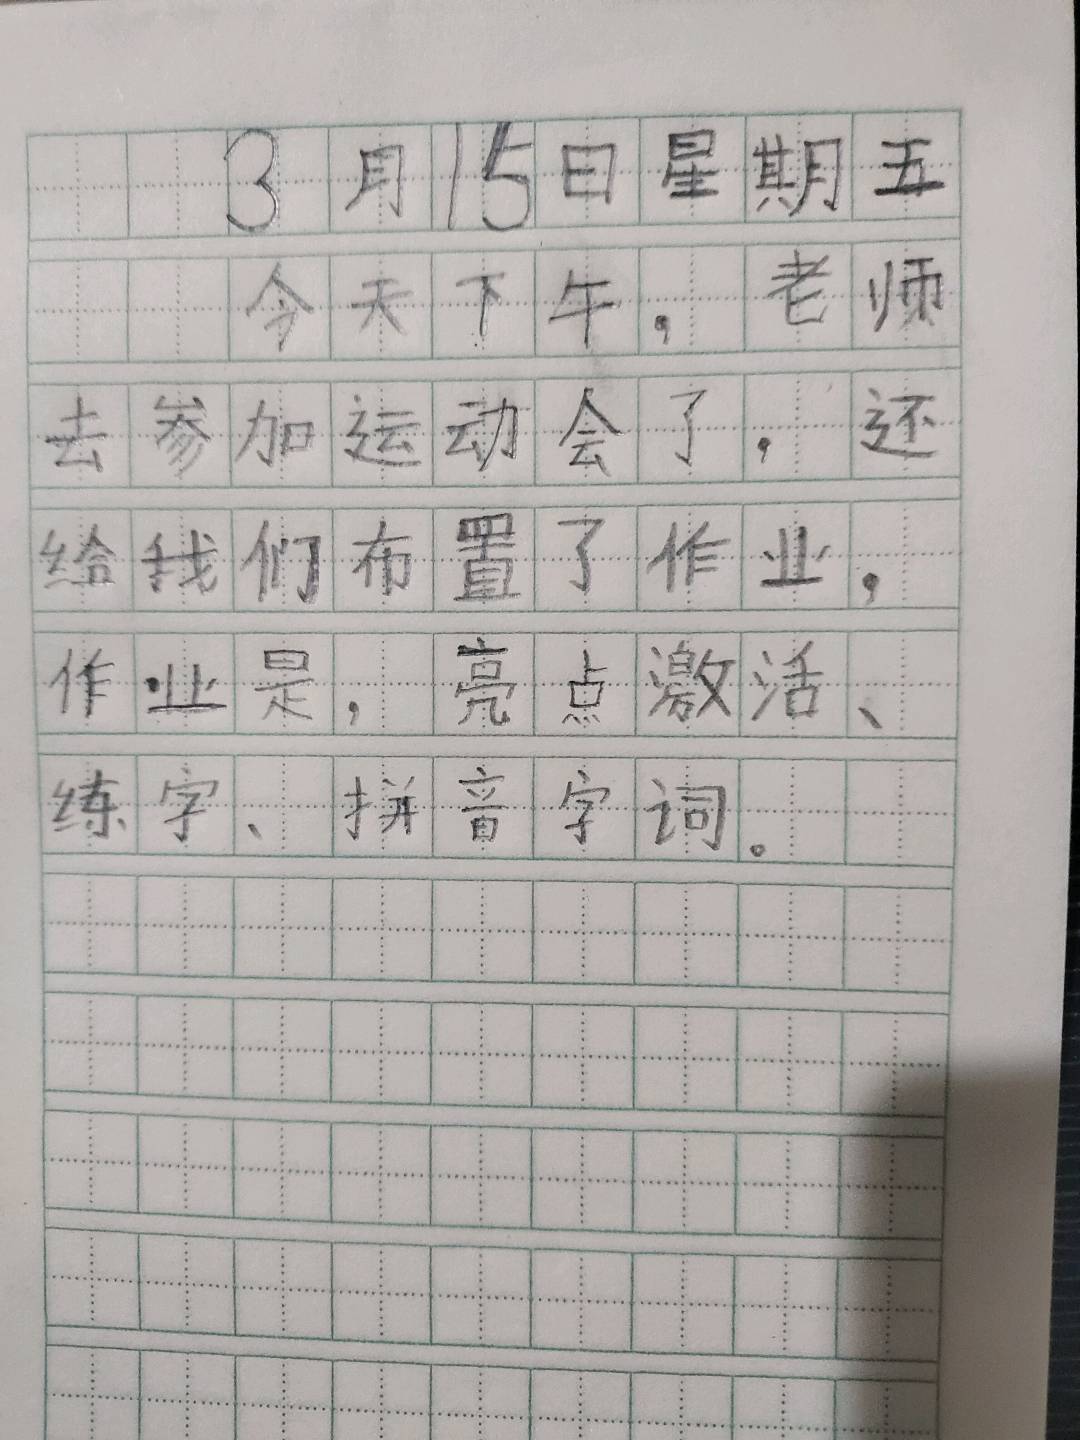 3月15日星期五
今天下午，老师
去参加运动会了，还
给我们布置了作业，
作业是，亮点激活、
练字、拼音字词。